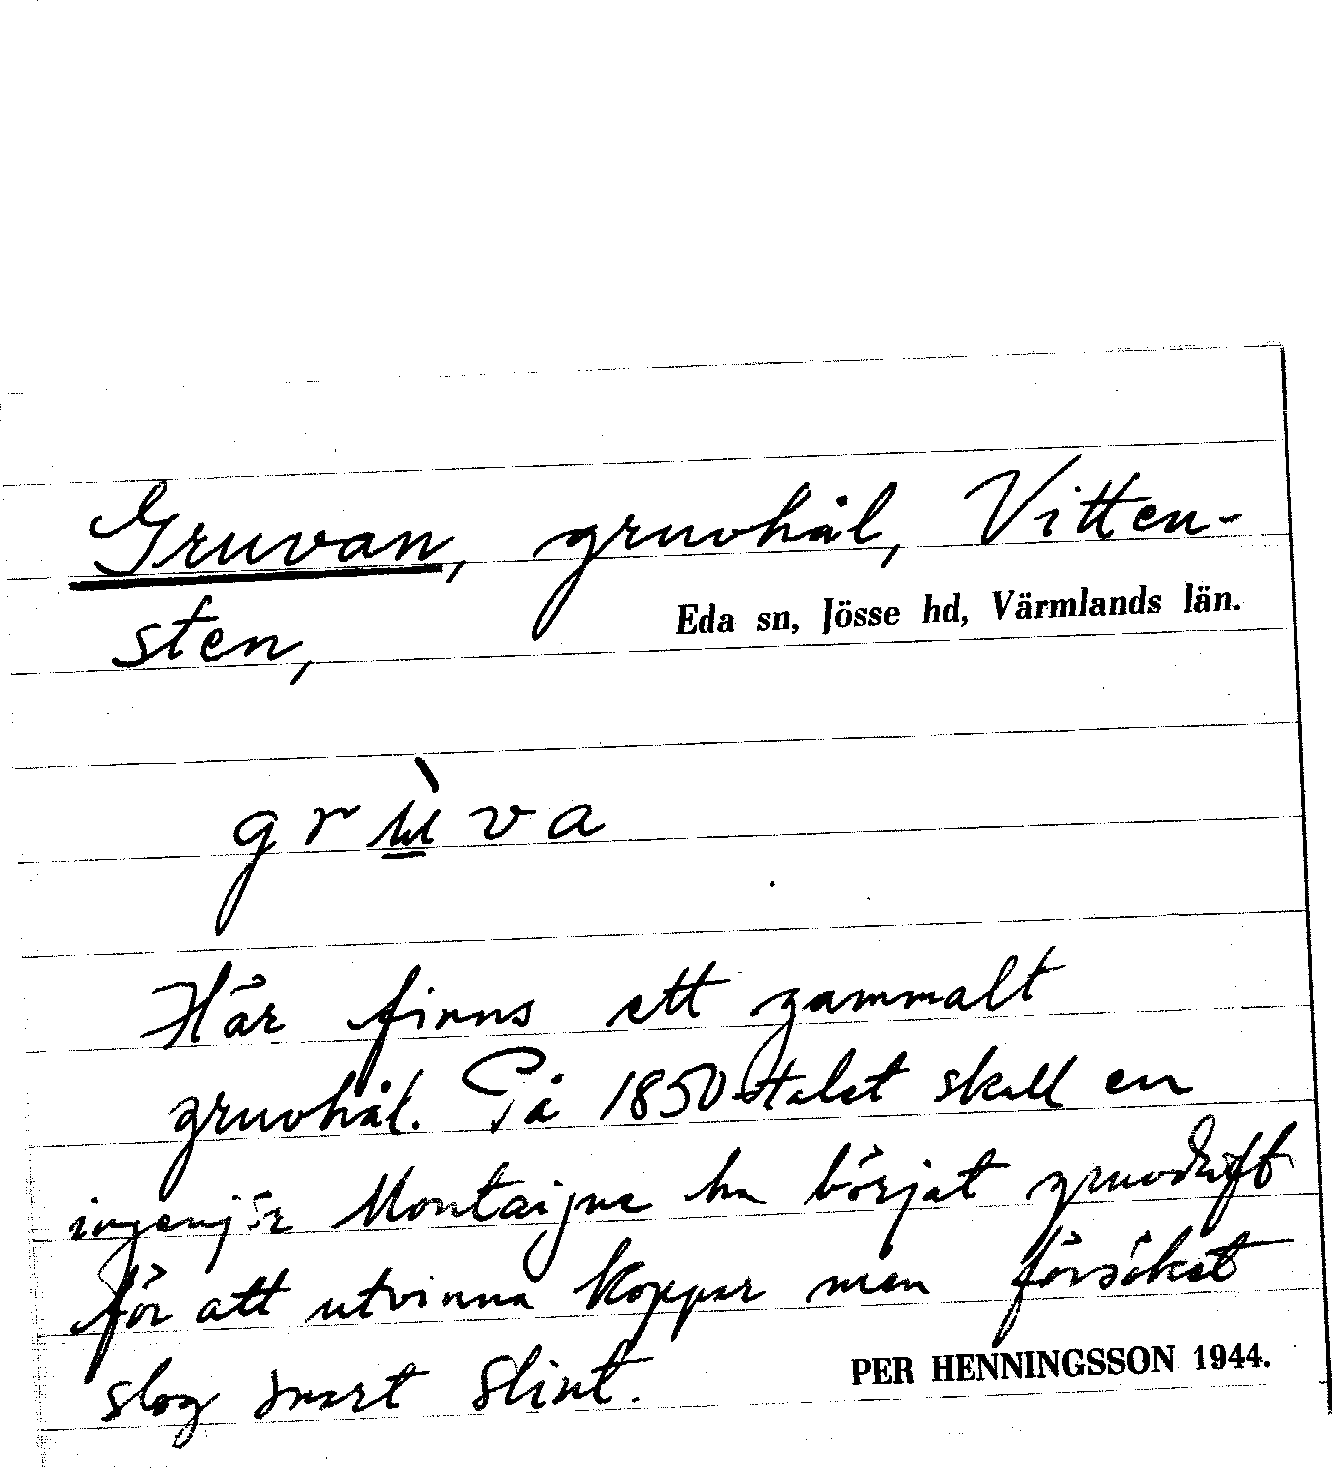 Gruvan, gruvhål, Vitten-
sten,
Eda sn, Jösse hd, Värmlands län.
grùva
Här finns ett gammalt
gruvhål. På 1850-talet skall en
ingenjör Montaigne ha börjat gruvdrift
för att utvinna koppar men försöket
slog snart slint.
PER HENNINGSSON 1944.